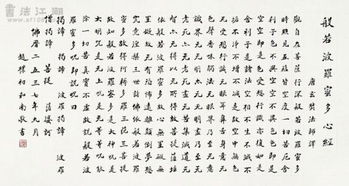 般若波羅蜜多心經
唐玄奘法師譯
觀自在菩薩行深般若波羅蜜多
時照見五蘊皆空度一切苦厄舍
利子色不異空空不異色色即是
空空即是色受想行識亦復如是
舍利子是諸法空相不生不滅不
垢不淨不增不減是故空中無色
無受想行識無眼耳鼻舌身意無
色聲香味觸法無眼界乃至無意
識界無無明亦無無明盡乃至無
老死亦無老死盡無苦集滅道無
智亦無得以無所得故菩提薩埵
依般若波羅蜜多故心無罣礙無
罣礙故無有恐怖遠離顛倒夢想
究竟涅槃三世諸佛依般若波羅
蜜多故得阿耨多羅三藐三菩提
故知般若波羅蜜多是大神咒是
大明咒是無上咒是無等等咒能
除一切苦真實不虛故說般若波
羅蜜多咒即說咒曰
揭諦揭諦 波羅揭諦 波羅
僧揭諦 菩提 薩婆訶
佛曆二五三七年九月
趙樸初和南敬書